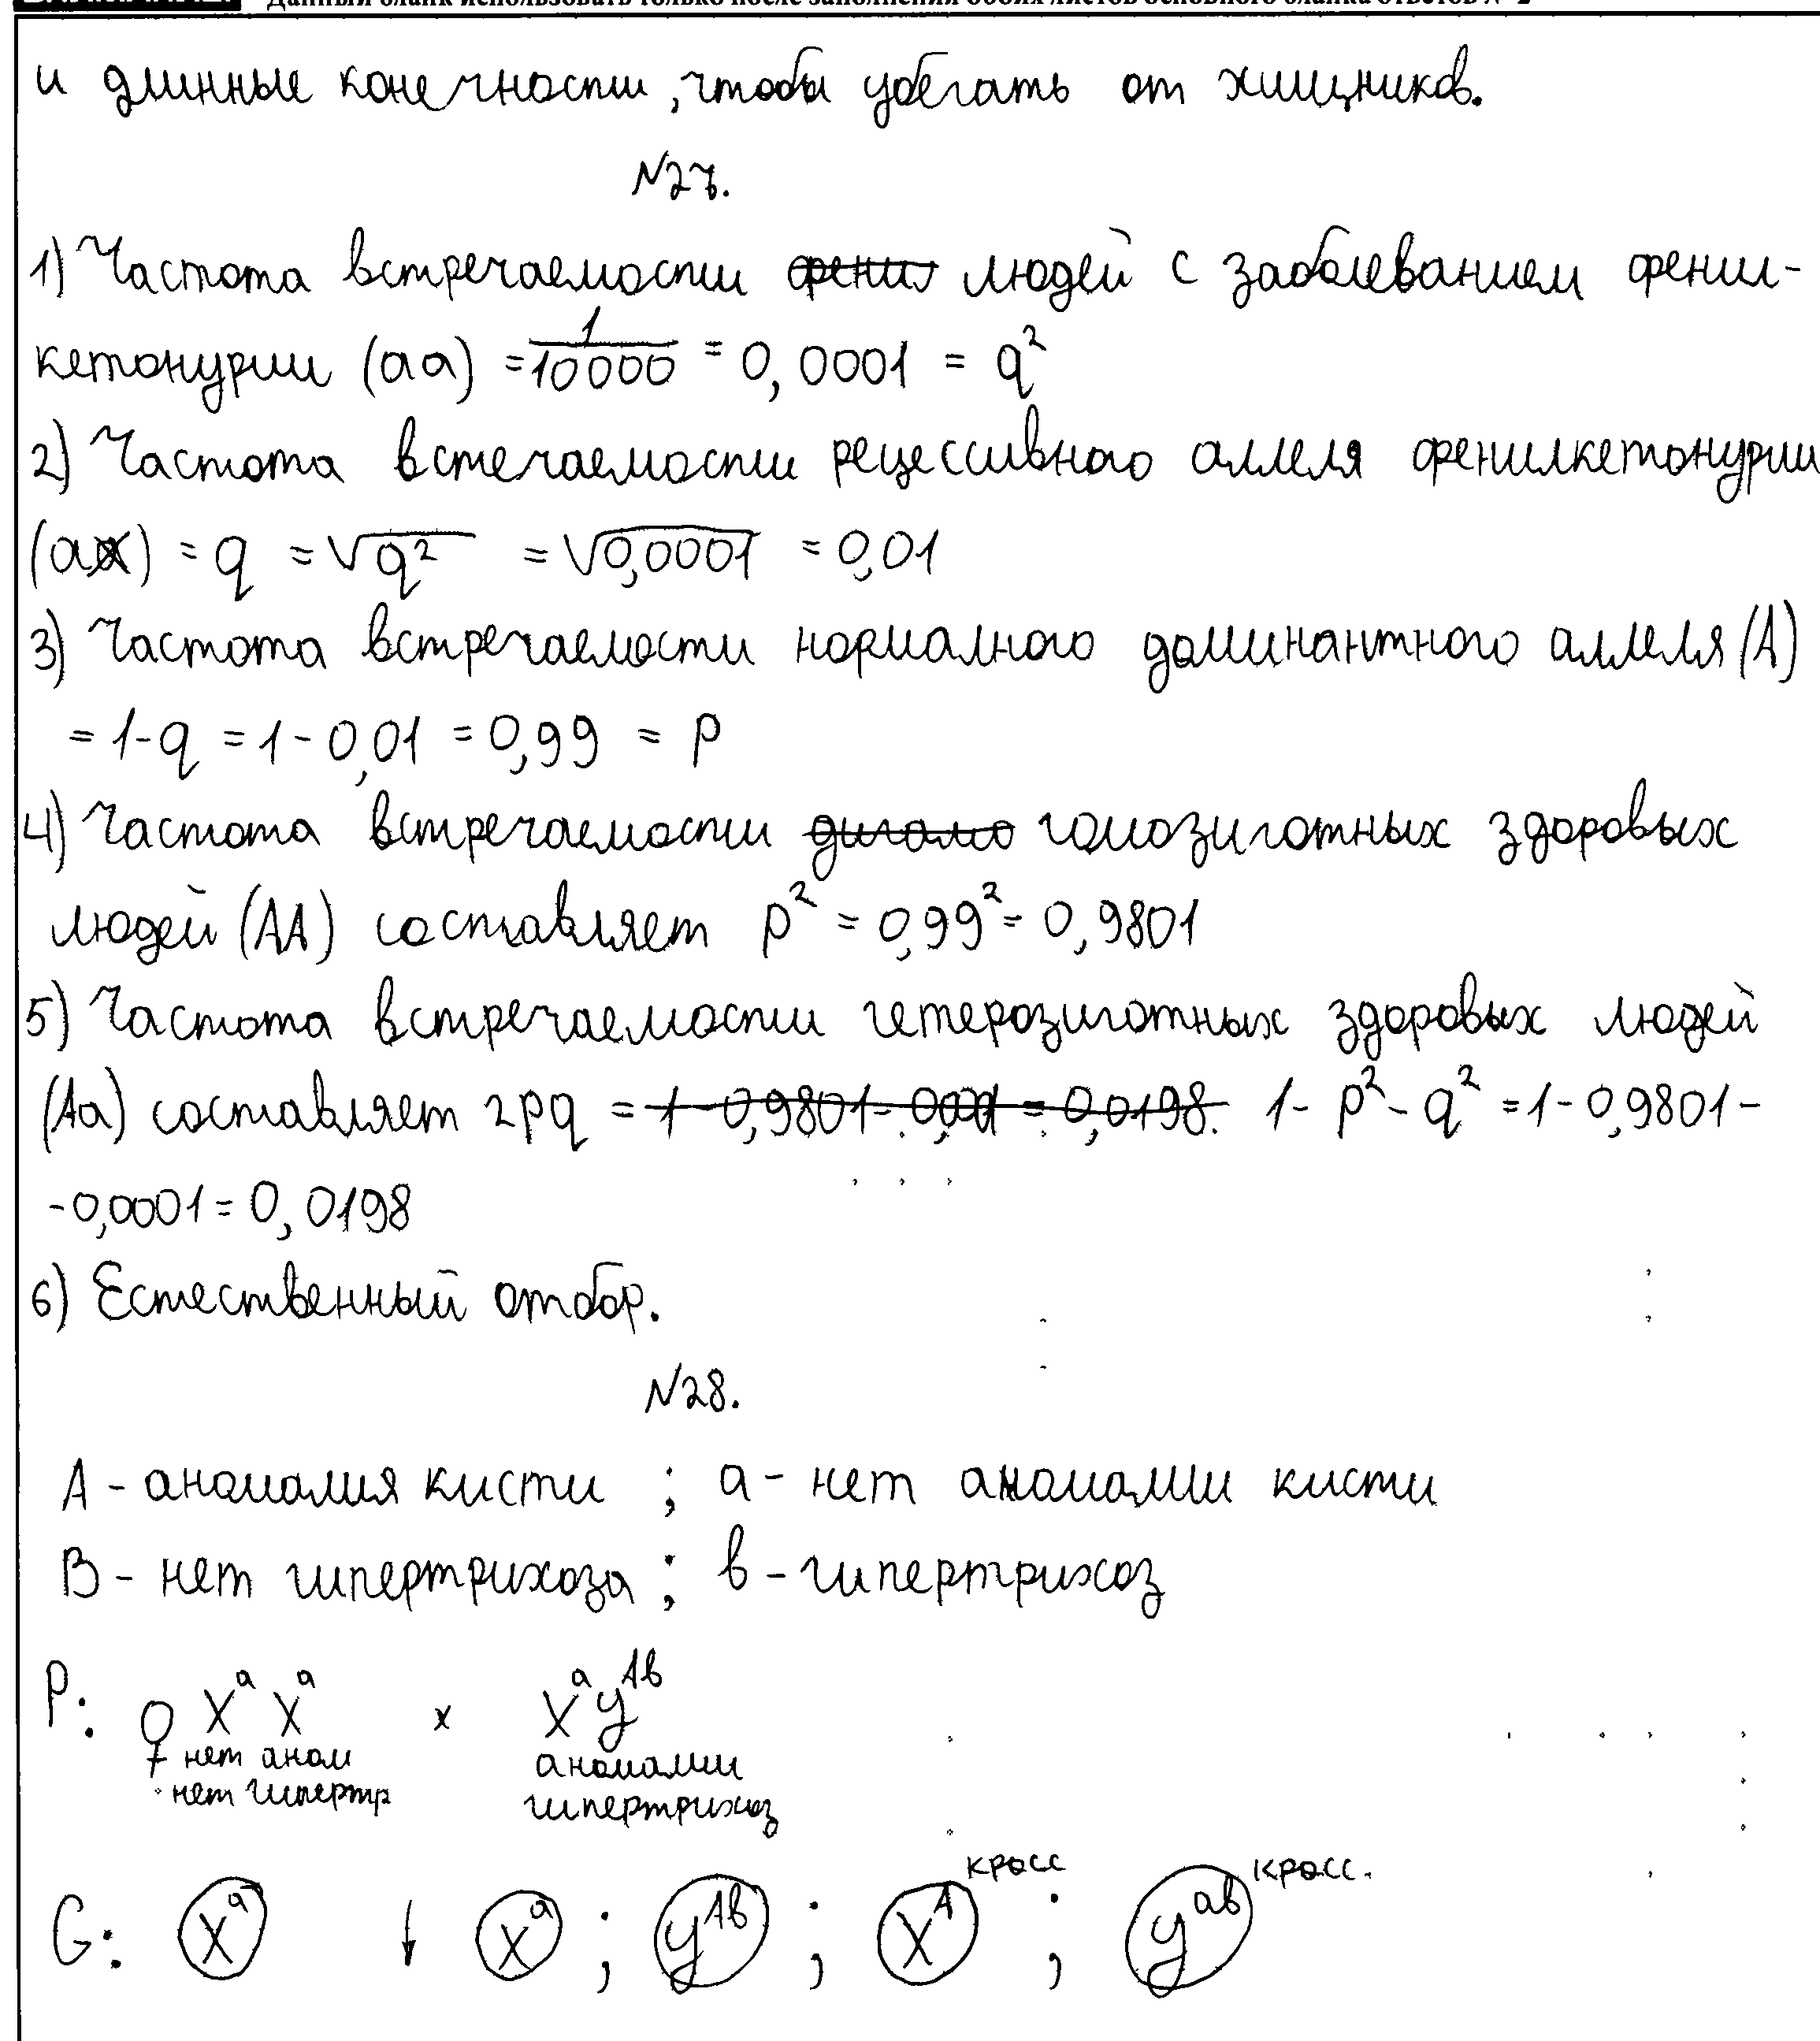 Данный бланк использовать только после заполнения обоих листов основного бланка ответов № 2
и длинные конечности, чтобы убегать от хищников.
№27.
1) Частота встречаемости фенил людей с заболеванием фенил-
кетонурии (aa) = 1/10000 = 0,0001 = q²
2) Частота встечаемости рецессивного аллеля фенилкетонурии
(aa) = q = √q² = √0,0001 = 0,01
3) Частота встречаемости нормалного доминантного аллеля (A)
= 1-q = 1-0,01 = 0,99 = p
4) Частота встречаемости дигомо гомозиготных здоровых
людей (AA) составляет p² = 0,99² = 0,9801
5) Частота встречаемости гетерозиготных здоровых людей
(Aa) составляет 2pq = 1-0,9801-0,001 = 0,0198. 1-p²-q² = 1-0,9801-
-0,0001 = 0,0198
6) Естественный отбор.
№28.
A - аномалия кисти ; a - нет аномалии кисти
B - нет гипертрихоза ; в - гипертрихоз
P: ♀ XᵃXᵃ x XᵃYᴬᵇ
нет аном аномалии
нет гипертр гипертрихоз
красс красс.
G: Xᵃ ↓ Xᵃ ; Yᴬᵇ ; Xᴬ ; Yᵃᵇ